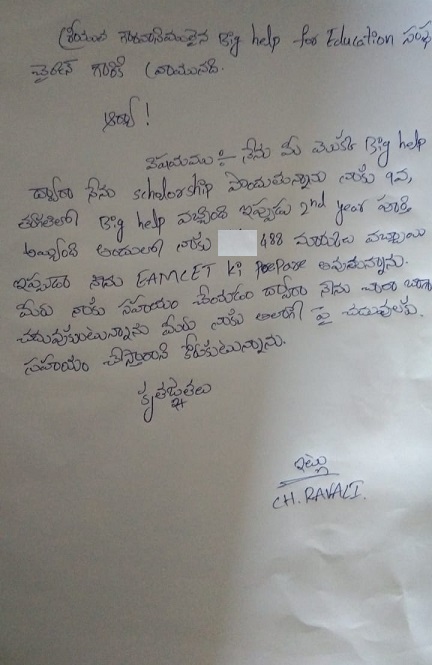 శ్రీయుత గౌరవనీయులైన Big help for Education సంస్థ
చైర్మన్ గారికి వ్రాయునది.
ఆర్యా!
విషయము ÷ నేను మీ యొక్క Big help
ద్వారా నేను scholorship పొందుతున్నాను నాకు 9వ,
తరగతిలో Big help వచ్చింది ఇప్పుడు 2nd year పూర్తి
అయ్యింది అందులో నాకు 488 మార్కులు వచ్చాయి
ఇప్పుడు నేను EAMCET ki prepare అవుతున్నాను.
మీరు నాకు సహాయం చేయడం ద్వారా నేను చాలా బాగా
చదువుకుంటున్నాను మీరు నాకు అలాగే పై చదువులకు
సహాయం చేస్తారని కోరుకుంటున్నాను.
కృతజ్ఞతలు
ఇట్లు
CH. RAVALI.